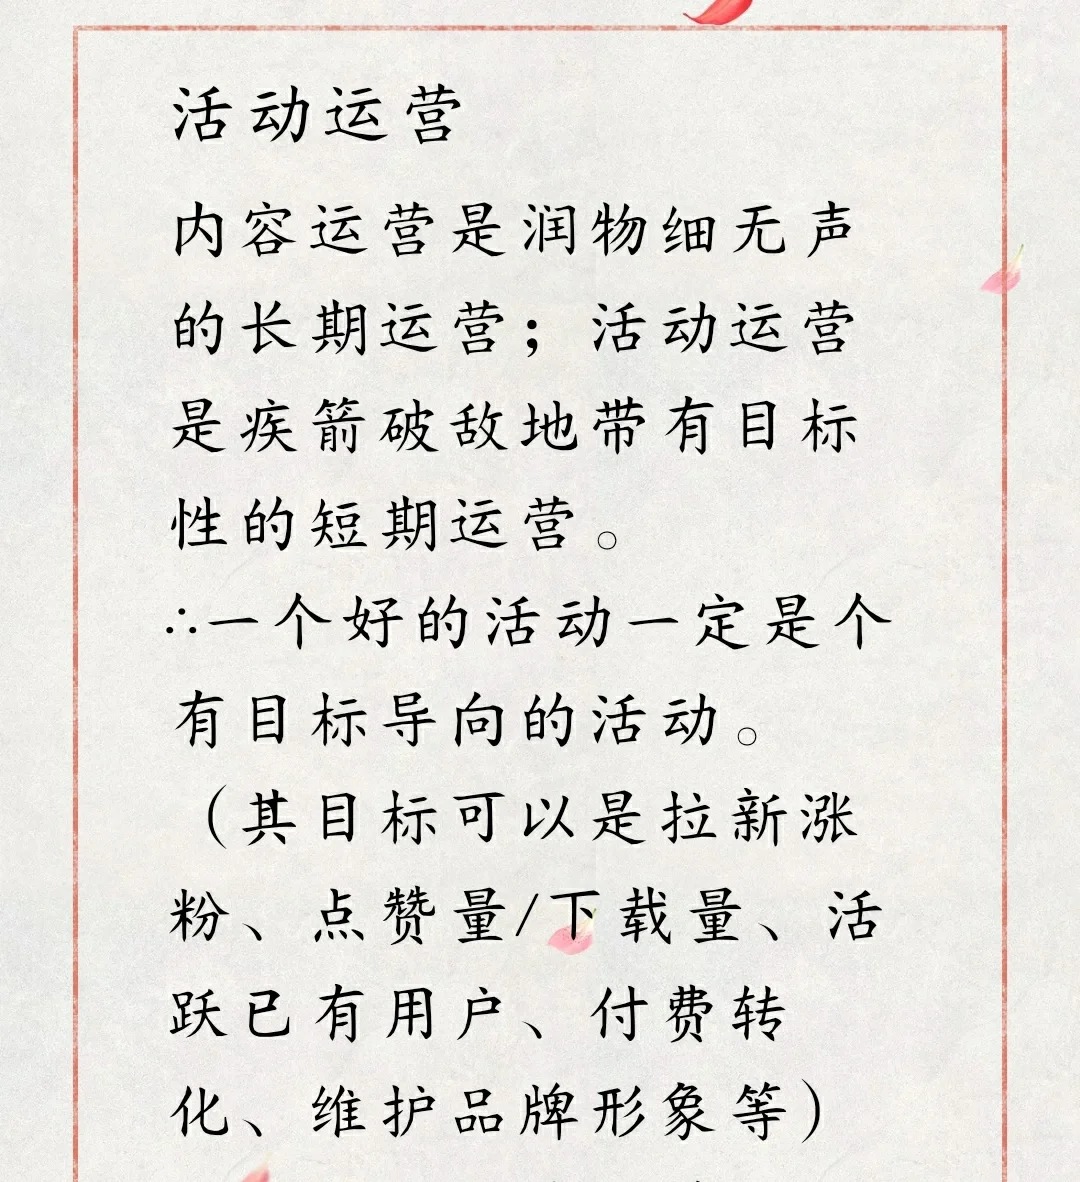 活动运营
内容运营是润物细无声
的长期运营；活动运营
是疾箭破敌地带有目标
性的短期运营。
∴一个好的活动一定是个
有目标导向的活动。
（其目标可以是拉新涨
粉、点赞量/下载量、活
跃已有用户、付费转
化、维护品牌形象等）